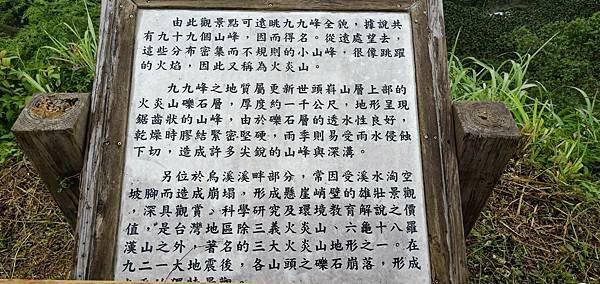 由此觀景點可遠眺九九峰全貌，據說共
有九十九個山峰，因而得名。從遠處望去，
這些分布密集而不規則的小山峰，很像跳躍
的火焰，因此又稱為火炎山。
九九峰之地質屬更新世頭嵙山層上部的
火炎山礫石層，厚度約一千公尺，地形呈現
鋸齒狀的山峰，由於礫石層的透水性良好，
乾燥時膠結緊密堅硬，雨季則易受雨水侵蝕
下切，造成許多尖銳的山峰與深溝。
另位於烏溪溪畔部分，常因受溪水淘空
坡腳而造成崩塌，形成懸崖峭壁的雄壯景觀
，深具觀賞、科學研究及環境教育解說之價
值，是台灣地區除三義火炎山、六龜十八羅
漢山之外，著名的三大火炎山地形之一。在
九二一大地震後，各山頭之礫石崩落，形成